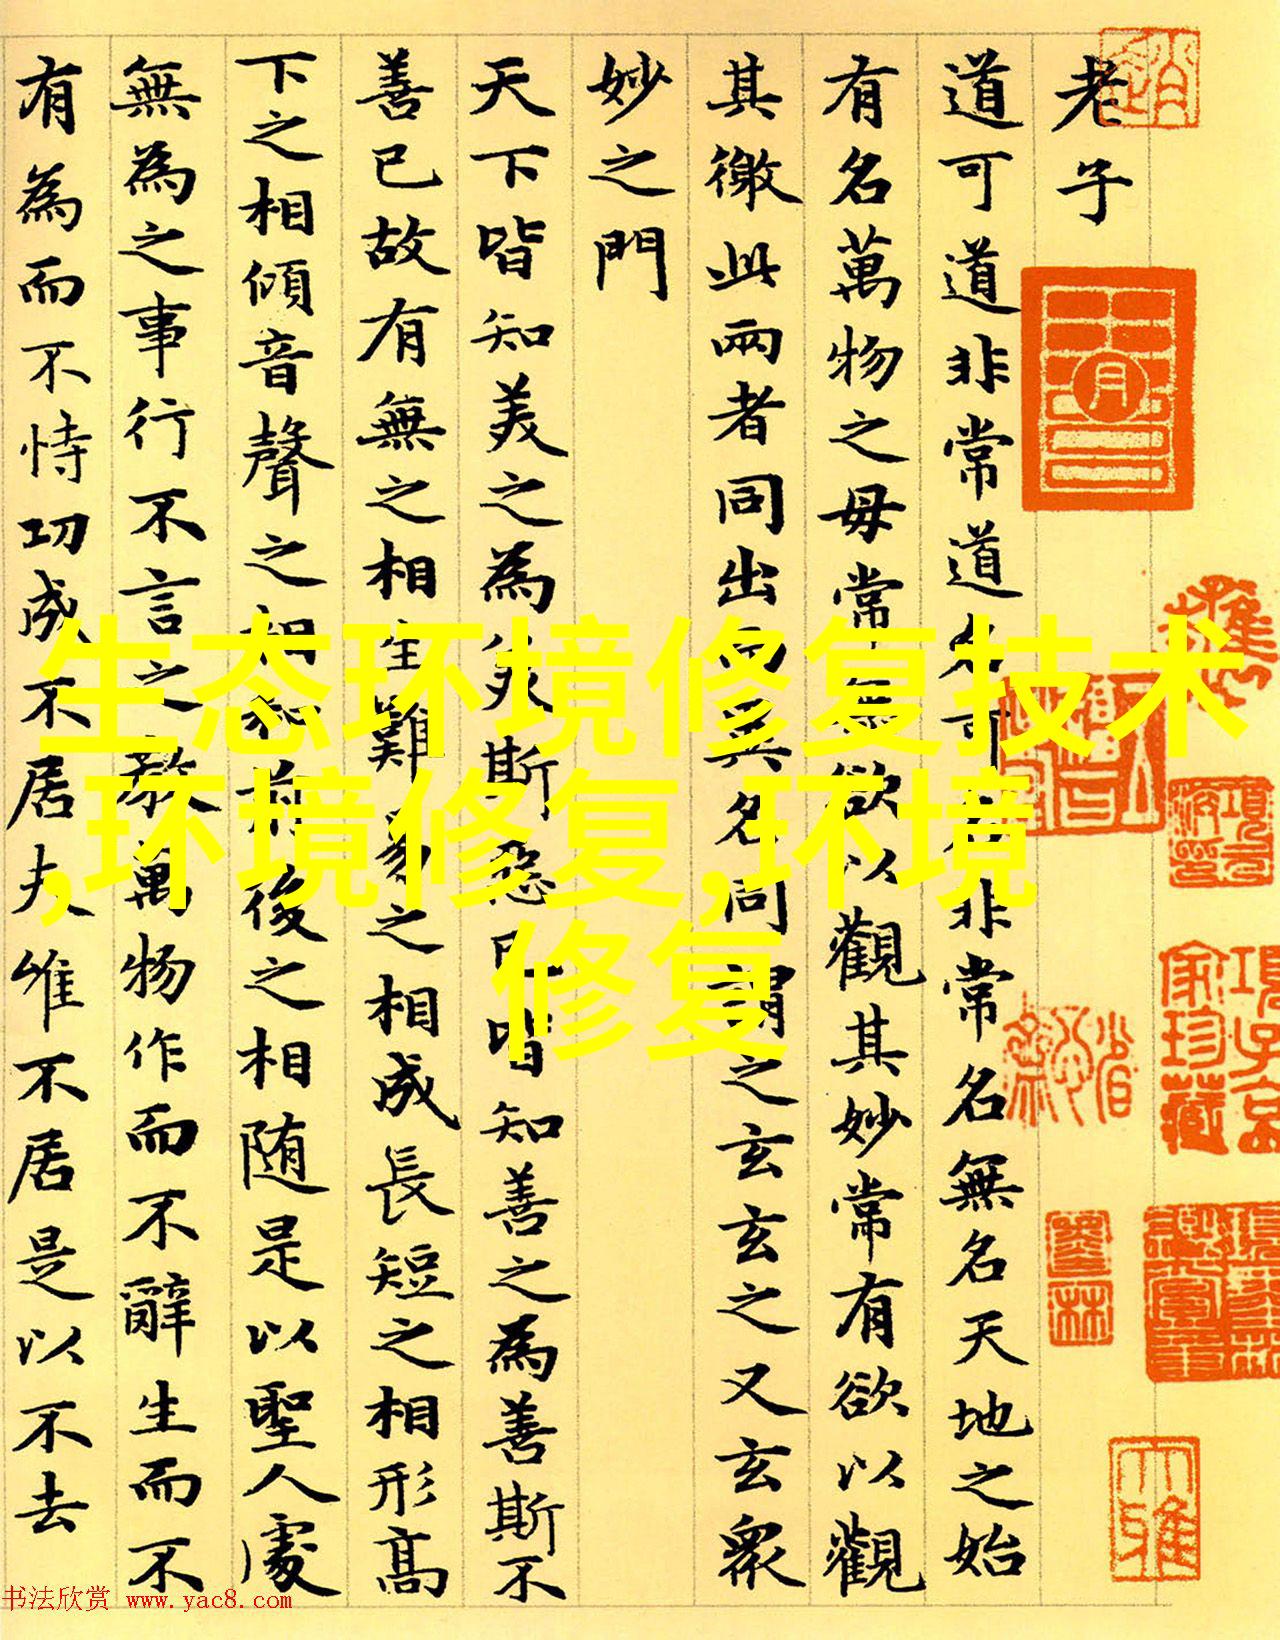 老子
道可道非常道名可名非常名無名天地之始
有名萬物之母常無欲以觀其妙常有欲以觀
其徼此兩者同出而異名同謂之玄玄之又玄衆
妙之門
天下皆知美之為美斯惡已皆知善之為善斯不
善已故有無之相生難易之相成長短之相形高
下之相傾音聲之相和前後之相随是以聖人處
無為之事行不言之教萬物作而不辭生而不
有為而不恃功成不居夫唯不居是以不去
生态环境修复技术
,环境修复,环境
修复
項子京家珍藏
书法欣赏 www.yac8.com